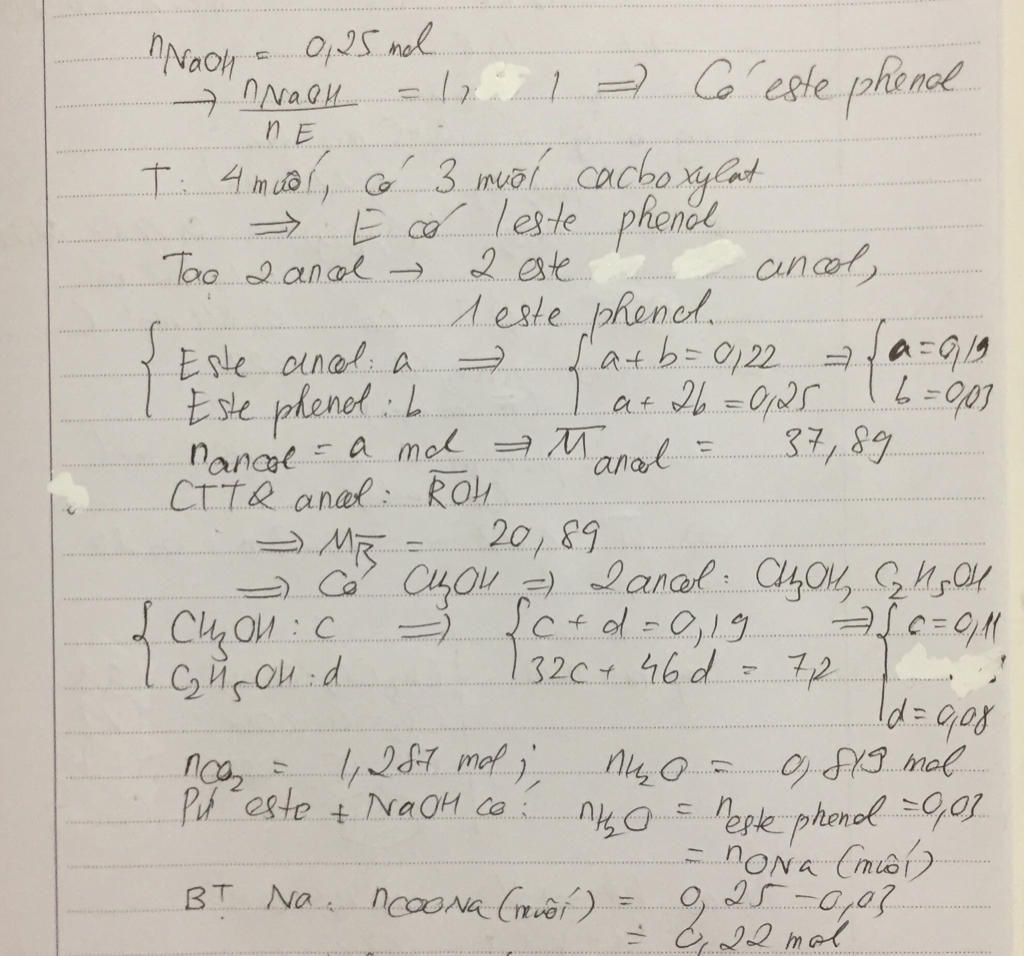 nNaOH = 0,25 mol
→ nNaOH / nE = 1, 1 ⇒ Có este phenol
T: 4 muối, có 3 muối cacboxylat
⇒ E có 1 este phenol
Tạo 2 ancol → 2 este ancol,
1 este phenol.
{ Este ancol: a ⇒ { a + b = 0,22 ⇒ { a = 0,19
Este phenol: b a + 2b = 0,25 b = 0,03
nancol = a mol ⇒ M̅ancol = 37,89
CTTQ ancol: R̅OH
⇒ MR̅ = 20,89
⇒ Có CH3OH ⇒ 2 ancol: CH3OH, C2H5OH
{ CH3OH: c ⇒ { c + d = 0,19 ⇒ { c = 0,11
C2H5OH: d 32c + 46d = 7,2
d = 0,08
nCO2 = 1,287 mol; nH2O = 0,819 mol
Pứ este + NaOH có: nH2O = neste phenol = 0,03
= nONa (muối)
BT Na: nCOONa (muối) = 0,25 - 0,03
= 0,22 mol